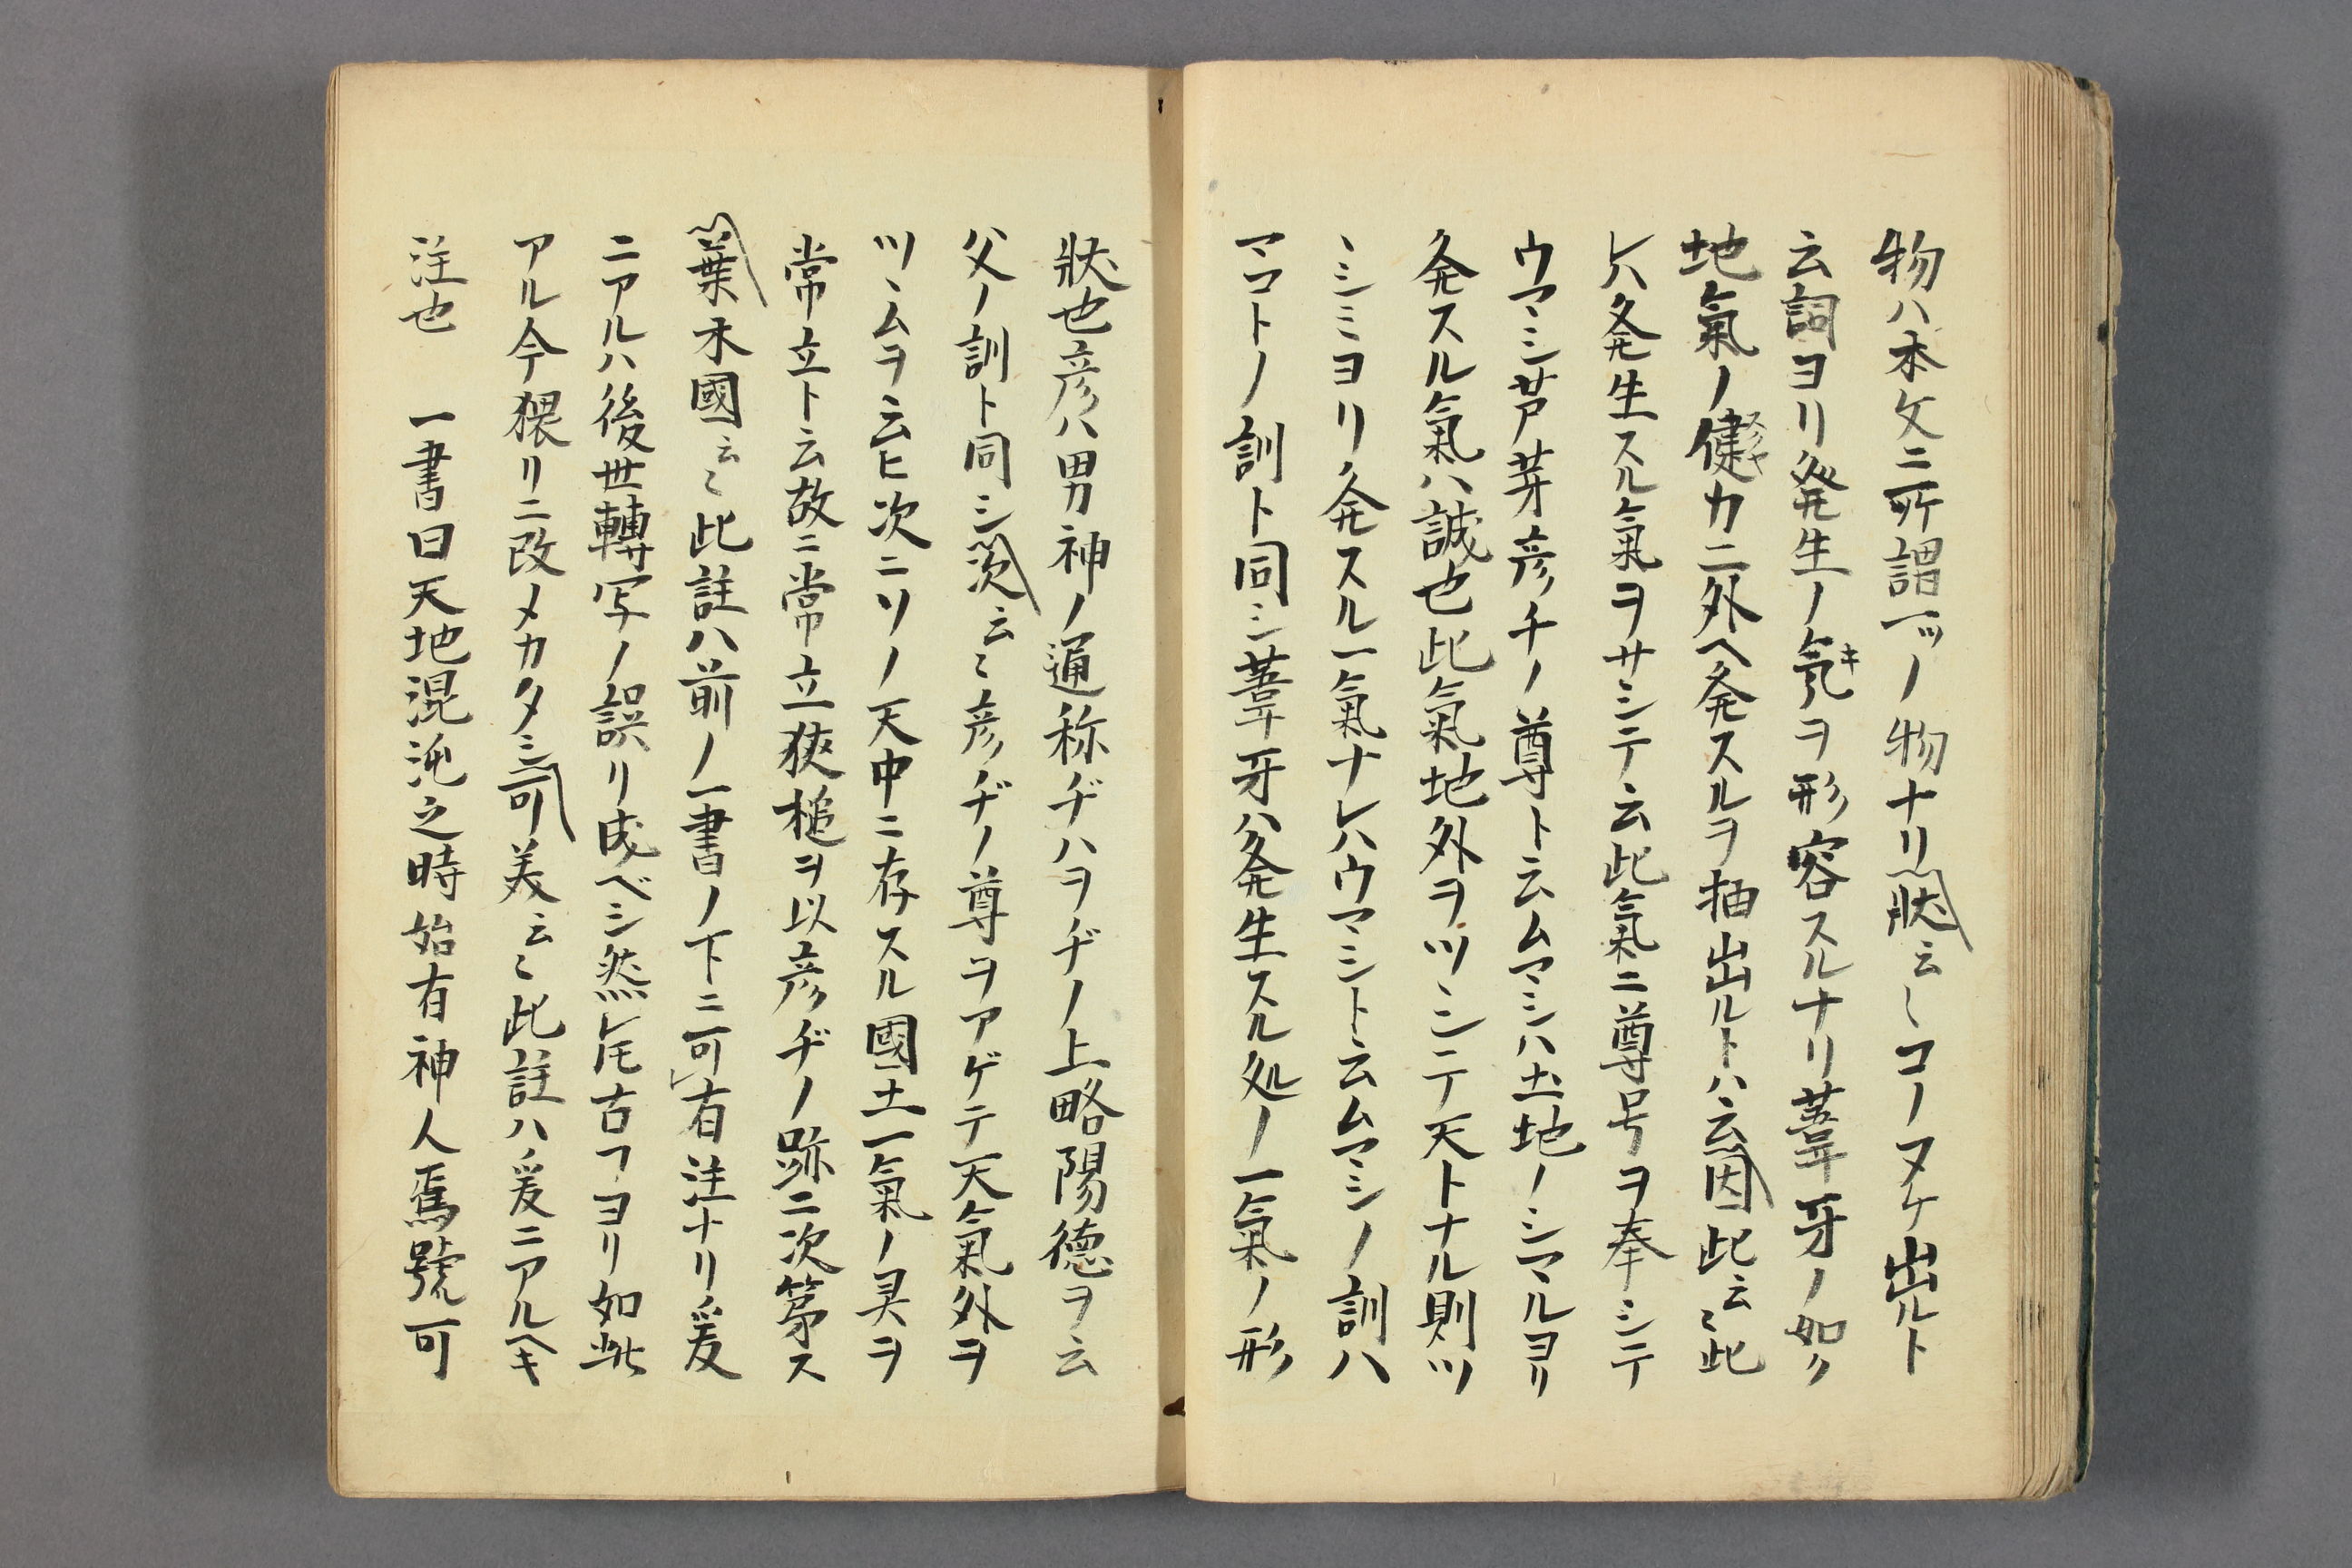 物ハ本文ニ所謂一ツノ物ナリ狀云〻コノヌケ出ルト
云詞ヨリ発生ノ気キヲ形容スルナリ葦牙ノ如ク
地氣ノ健カニ外ヘ発スルヲ抽出ルトハ云因此云〻此
レハ発生スル氣ヲサシテ云此氣ニ尊号ヲ奉シテ
ウマシ芦芽彦チノ尊ト云ムマシハ土地ノシマルヨリ
発スル氣ハ誠也此氣地外ヲツヽシニテ天トナル則ツ
ヽシミヨリ発スル一氣ナレハウマシト云ムマシノ訓ハ
マコトノ訓ト同シ葦牙ハ発生スル処ノ一氣ノ形
狀也彦ハ男神ノ通称ヂハヲヂノ上略陽德ヲ云
父ノ訓ト同シ次云〻彦ヂノ尊ヲアゲテ天氣外ヲ
ツヽムヲ云ヒ次ニソノ天中ニ存スル國土一氣ノ灵ヲ
常立ト云故ニ常立狹槌ヲ以彦ヂノ跡ニ次第ス
葉木國云〻此註ハ前ノ一書ノ下ニ可有注ナリ爰
ニアルハ後世轉写ノ誤リ成ベシ然レ𪜈古ヿヨリ如此
アル今猥リニ改メカタシ可美云〻此註ハ爰ニアルヘキ
注也　一書曰天地混沌之時始有神人焉號可